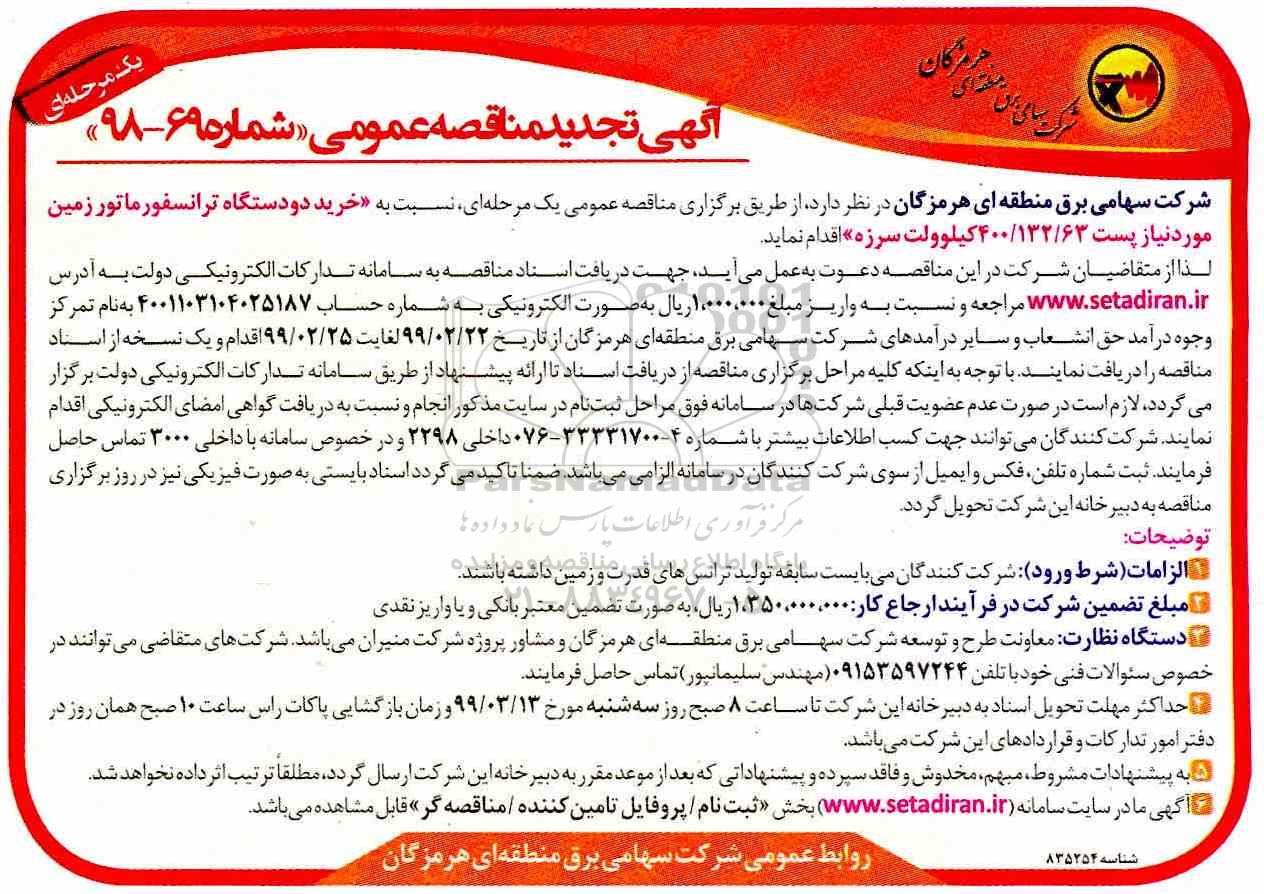 شرکت سهامی برق منطقه ای هرمزگان
یک مرحله‌ای
آگهی تجدید مناقصه عمومی «شماره ۶۹-۹۸»
شرکت سهامی برق منطقه ای هرمزگان در نظر دارد، از طریق برگزاری مناقصه عمومی یک مرحله‌ای، نسبت به «خرید دو دستگاه ترانسفورماتور زمین
مورد نیاز پست ۴۰۰/۱۳۲/۶۳ کیلوولت سرزه» اقدام نماید.
لذا از متقاضیان شرکت در این مناقصه دعوت به‌عمل می‌آید، جهت دریافت اسناد مناقصه به سامانه تدارکات الکترونیکی دولت به آدرس
www.setadiran.ir مراجعه و نسبت به واریز مبلغ ۱،۰۰۰،۰۰۰ ریال به‌صورت الکترونیکی به شماره حساب ۴۰۰۱۱۰۳۱۰۴۰۲۵۱۸۷ به‌نام تمرکز
وجوه درآمد حق انشعاب و سایر درآمدهای شرکت سهامی برق منطقه‌ای هرمزگان از تاریخ ۹۹/۰۲/۲۲ لغایت ۹۹/۰۲/۲۵ اقدام و یک نسخه از اسناد
مناقصه را دریافت نمایند. با توجه به اینکه کلیه مراحل برگزاری مناقصه از دریافت اسناد تا ارائه پیشنهاد از طریق سامانه تدارکات الکترونیکی دولت برگزار
می گردد، لازم است در صورت عدم عضویت قبلی شرکت‌ها در سامانه فوق مراحل ثبت‌نام در سایت مذکور انجام و نسبت به دریافت گواهی امضای الکترونیکی اقدام
نمایند. شرکت کنندگان می‌توانند جهت کسب اطلاعات بیشتر با شماره ۴-۳۳۳۳۱۷۰۰-۰۷۶ داخلی ۲۲۹۸ و در خصوص سامانه با داخلی ۳۰۰۰ تماس حاصل
فرمایند. ثبت شماره تلفن، فکس و ایمیل از سوی شرکت کنندگان در سامانه الزامی می‌باشد. ضمنا تاکید می گردد اسناد بایستی به صورت فیزیکی نیز در روز برگزاری
مناقصه به دبیرخانه این شرکت تحویل گردد.
ParsNamadData
مرکز فرآوری اطلاعات پارس نماد داده ها
پایگاه اطلاع رسانی مناقصه و مزایده
توضیحات:
۱ الزامات (شرط ورود): شرکت کنندگان می‌بایست سابقه تولید ترانس های قدرت و زمین داشته باشند.
۲ مبلغ تضمین شرکت در فرآیند ارجاع کار: ۱،۳۵۰،۰۰۰،۰۰۰ ریال، به صورت تضمین معتبر بانکی و یا واریز نقدی
۳ دستگاه نظارت: معاونت طرح و توسعه شرکت سهامی برق منطقه‌ای هرمزگان و مشاور پروژه شرکت منیران می‌باشد. شرکت‌های متقاضی می‌توانند در
خصوص سئوالات فنی خود با تلفن ۰۹۱۵۳۵۹۷۲۴۴ (مهندس سلیمانپور) تماس حاصل فرمایند.
۴ حداکثر مهلت تحویل اسناد به دبیرخانه این شرکت تا ساعت ۸ صبح روز سه‌شنبه مورخ ۹۹/۰۳/۱۳ و زمان بازگشایی پاکات راس ساعت ۱۰ صبح همان روز در
دفتر امور تدارکات و قراردادهای این شرکت می‌باشد.
۵ به پیشنهادات مشروط، مبهم، مخدوش و فاقد سپرده و پیشنهاداتی که بعد از موعد مقرر به دبیرخانه این شرکت ارسال گردد، مطلقاً ترتیب اثر داده نخواهد شد.
۶ آگهی ما در سایت سامانه (www.setadiran.ir) بخش «ثبت نام / پروفایل تامین کننده / مناقصه گر» قابل مشاهده می‌باشد.
شناسه ۸۳۵۲۵۴
روابط عمومی شرکت سهامی برق منطقه‌ای هرمزگان